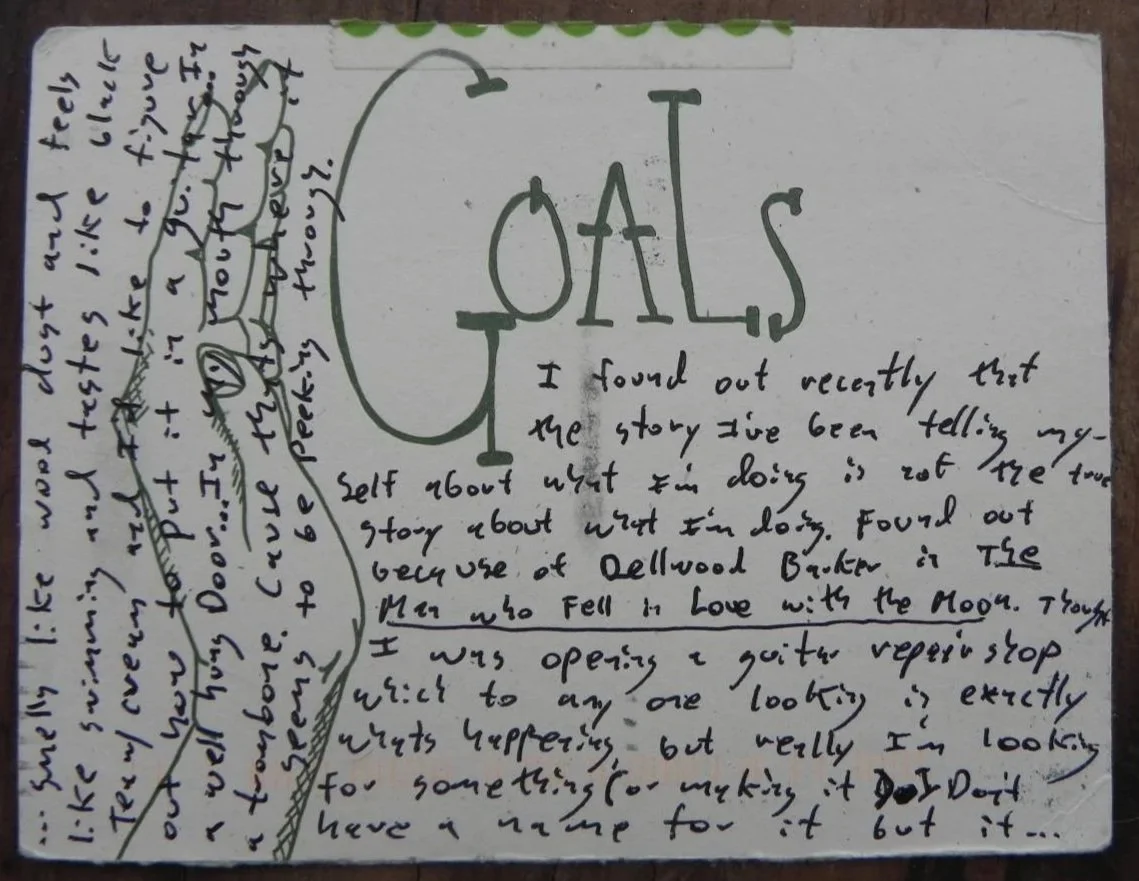 GOALS
I found out recently that
the story I've been telling my-
self about what I'm doing is not the true
story about what I'm doing. Found out
because of Dellwood Barker in The
Man who Fell in Love with the Moon. Thought
I was opening a guitar repair shop
which to any one looking is exactly
whats happening, but really I'm looking
for something (or making it Don't
have a name for it but it...
... smells like wood dust and feels
like swimming and tastes like black
Tea w/ cream and I'd like to figure
out how to put it in a guitar. In
a well hung Door... in
Cause that
peeking through.